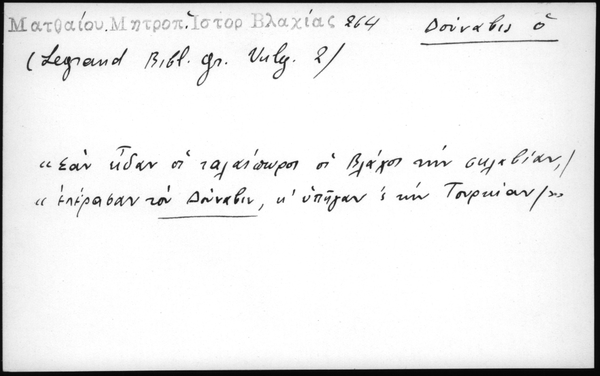 Ματθαίου. Μητροπ. Ἱστορ Βλαχίας 264 Δούναβις ὁ
(Legrand Bibl. gr. Vulg. 2)
«Σὰν εἶδαν οἱ ταλαίπωροι οἱ Βλάχοι τὴν σκλαβίαν,/
«ἐπέρασαν τὸν Δούναβιν, κ' ὑπῆγαν 'ς τὴν Τουρκίαν/»